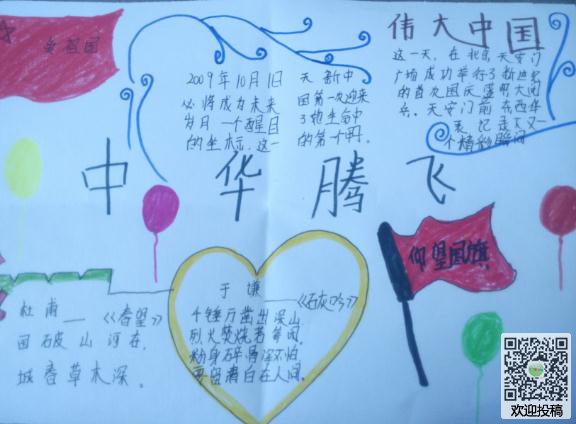 爱祖国
伟大中国
2009年10月1日 天 新中
必将成为未来 国第一次迎来
岁月 一个醒目 了她生命中
的坐标,这一 的第一个
这一天,在北京天安门
广场成功举行了新世纪
的首次国庆盛典大阅
兵。天安门前 在西年
表 记录下又一
个精彩瞬间
中华腾飞
仰望国旗
杜甫——《春望》
国破山河在,
城春草木深。
于谦——《石灰吟》
千锤万凿出深山
烈火焚烧若等闲,
粉身碎骨浑不怕
要留清白在人间。
欢迎投稿